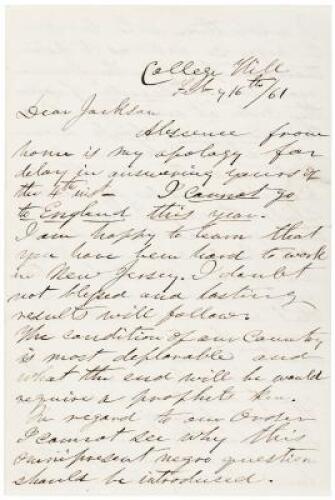 College Hill
Feb'y 16th/61
Dear Jackson
Abssence from
home is my apology for
delay in answering yours of
the 4th inst I cannot go
to England this year.
I am happy to learn that
you have been hard to work
in New Jersey. I doubt
not blessed and lasting
results will follow.
The condition of our Country
is most deplorable and
what the end will be would
require a prophets
In regard to our Order
I cannot see why this
omnipresent negro question
should be introduced.